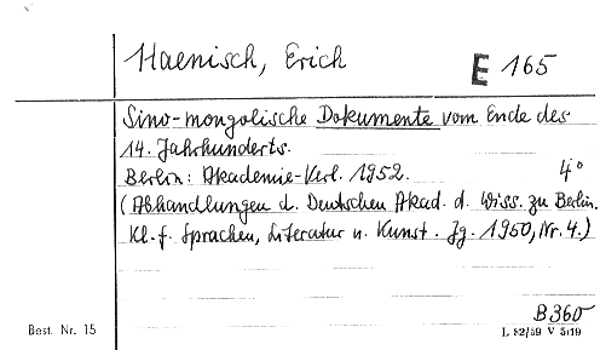 Haenisch, Erich
E 165
Sino-mongolische Dokumente vom Ende des
14. Jahrhunderts.
Berlin: Akademie-Verl. 1952. 4°
(Abhandlungen d. Deutschen Akad. d. Wiss. zu Berlin.
Kl. f. Sprachen, Literatur u. Kunst. Jg. 1950, Nr. 4.)
B 360
Best. Nr. 15
L 52/59 V 5119